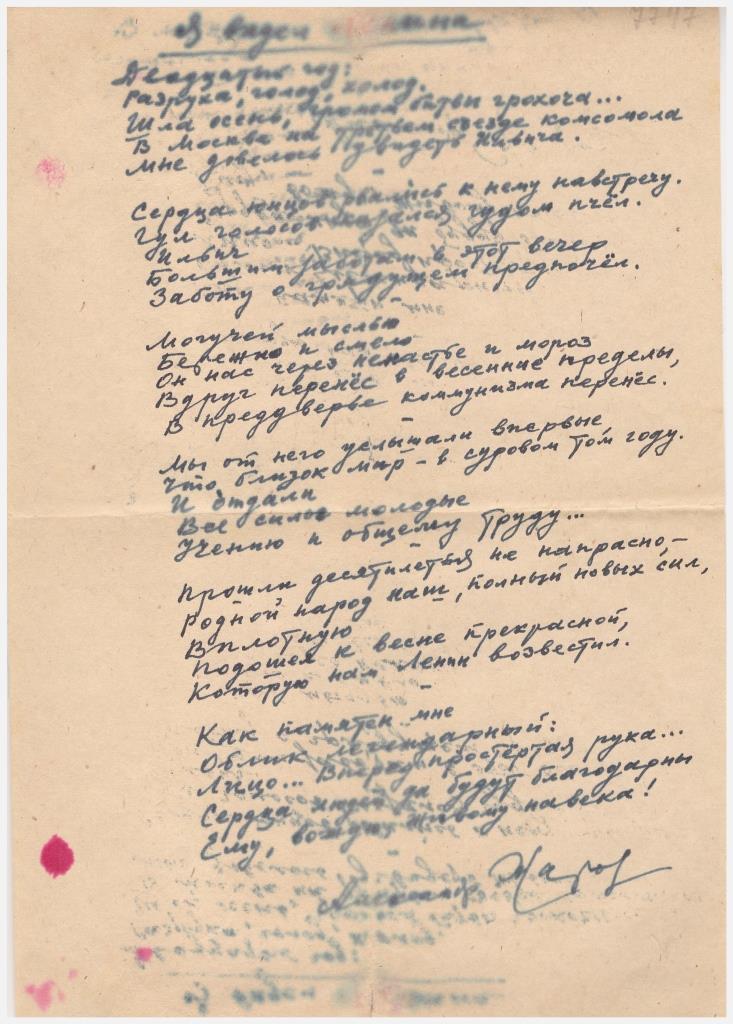 7747
Я видел Ленина
Двадцатый год:
Разруха, голод, холод.
Шла осень, громом битвы грохоча...
В Москве на третьем съезде комсомола
Мне довелось увидеть Ильича.
Сердца юнцов рвались к нему навстречу.
Гул голосов казался гудом пчёл.
Ильич
Большим заботам в этот вечер
Заботу о грядущем предпочёл.
Могучей мыслью
Бережно и смело
Он нас через ненастье и мороз
Вдруг перенёс в весенние пределы,
В преддверье коммунизма перенёс.
Мы от него услышали впервые
Что близок мир – в суровом том году.
И отдали
Все силы молодые
Учению и общему труду...
Прошли десятилетья не напрасно, –
Родной народ наш, полный новых сил,
Вплотную
Подошел к весне прекрасной,
Которую нам Ленин возвестил.
Как памятен мне
Облик легендарный:
Лицо... Вперед простёртая рука...
Сердца людей да будут благодарны
Ему, вождю, живому на века!
Александр Жаров